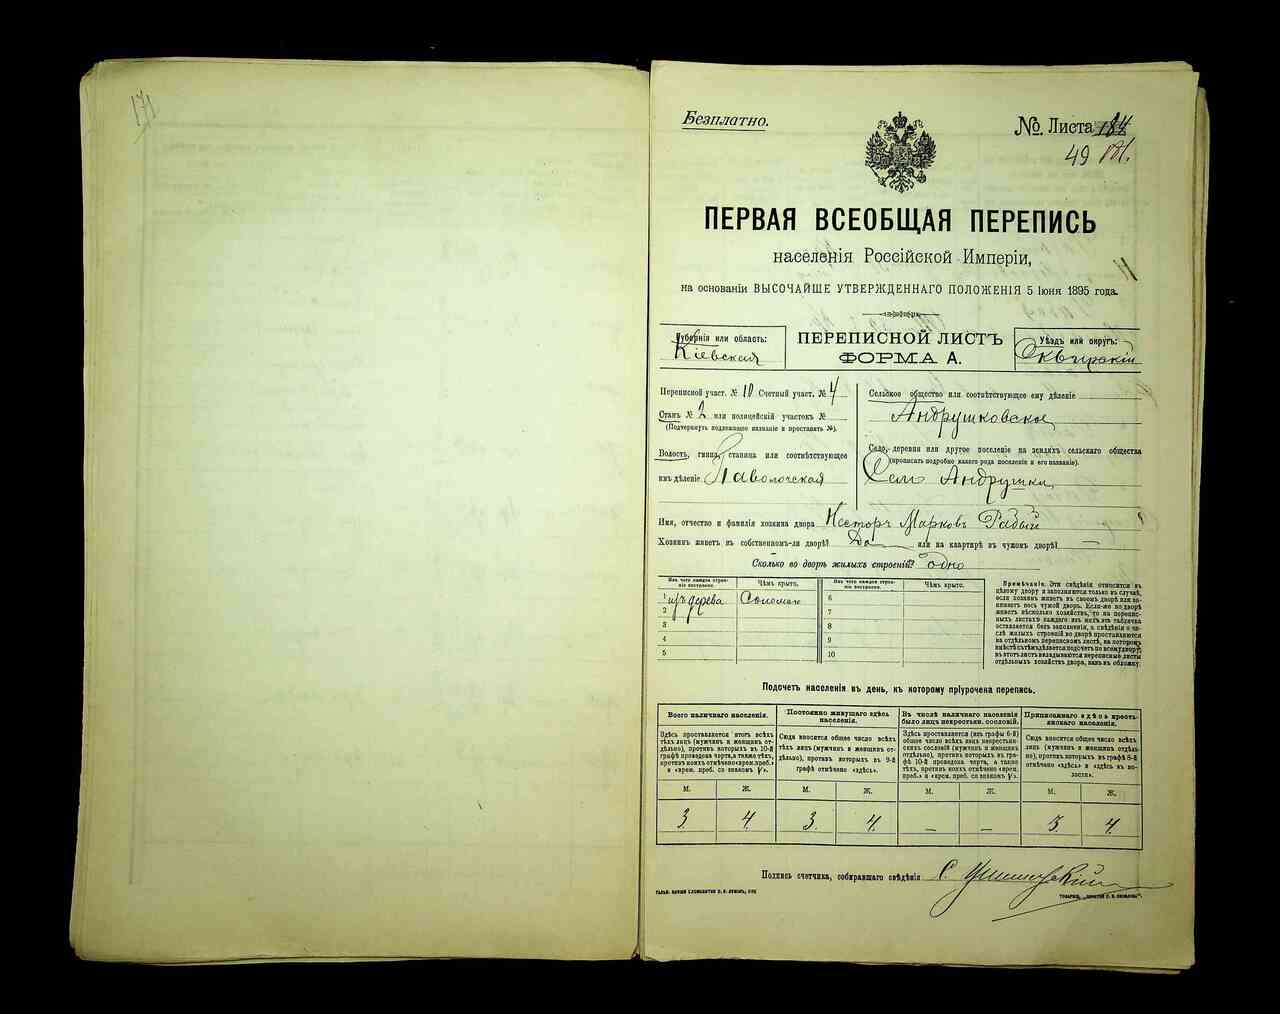 171
Безплатно.
№ Листа 184
49
181.
ПЕРВАЯ ВСЕОБЩАЯ ПЕРЕПИСЬ
населенія Россійской Имперіи,
на основаніи ВЫСОЧАЙШЕ УТВЕРЖДЕННАГО ПОЛОЖЕНІЯ 5 Іюня 1895 года.
Губернія или область:
Кіевская
ПЕРЕПИСНОЙ ЛИСТЪ
ФОРМА А.
Уѣздъ или округъ:
Сквирскій
Переписной участ. № 10 Счетный участ. № 4
Станъ № 2 или полицейскій участокъ №
(Подчеркнуть подлежащее названіе и проставить №).
Волость, гмина, станица или соотвѣтствующее
имъ дѣленіе Паволочская
Сельское общество или соотвѣтствующее ему дѣленіе
Андрушковское
Село, деревня или другое поселеніе на земляхъ сельскаго общества
(прописать подробно какого рода поселеніе и его названіе).
Село Андрушки
Имя, отчество и фамилія хозяина двора Несторъ Марковъ Рабый
Хозяинъ живетъ въ собственномъ-ли дворѣ? Да или на квартирѣ въ чужомъ дворѣ? —
Сколько во дворѣ жилыхъ строеній? одно
Изъ чего каждое строеніе построено.
Чѣмъ крыто.
Изъ чего каждое строеніе построено.
Чѣмъ крыто.
1 изъ дерева Соломою
2
3
4
5
6
7
8
9
10
Примѣчаніе. Эти свѣдѣнія относятся къ
цѣлому двору и заполняются только въ случаѣ,
если хозяинъ живетъ въ своемъ дворѣ или занимаетъ
весь чужой дворъ. Если-же во дворѣ
живетъ нѣсколько хозяйствъ, то на переписныхъ
листахъ каждаго изъ нихъ эта табличка
оставляется безъ заполненія, а свѣдѣнія о числѣ
жилыхъ строеній во дворѣ проставляются
на отдѣльномъ переписномъ листѣ, на которомъ
вмѣстѣ съ тѣмъ дѣлается подсчетъ по всему двору;
въ этотъ листъ вкладываются переписные листы
отдѣльныхъ хозяйствъ двора, какъ въ обложку.
Подсчетъ населенія въ день, къ которому пріурочена перепись.
Всего наличнаго населенія.
Здѣсь проставляется итогъ всѣхъ
тѣхъ лицъ (мужчинъ и женщинъ отдѣльно),
противъ которыхъ въ 10-й
графѣ проведена черта, а также тѣхъ,
противъ коихъ отмѣчено «врем. преб.»
и «врем. преб. со знакомъ V».
Постоянно живущаго здѣсь
населенія.
Сюда вносится общее число всѣхъ
тѣхъ лицъ (мужчинъ и женщинъ отдѣльно),
противъ которыхъ въ 9-й
графѣ отмѣчено «здѣсь».
Въ числѣ наличнаго населенія
было лицъ некрестьян. сословій.
Здѣсь проставляется (изъ графы 6-й)
общее число всѣхъ лицъ некрестьянскихъ
сословій (мужчинъ и женщинъ
отдѣльно), противъ которыхъ въ графѣ
10-й проведена черта, а также
тѣхъ, противъ коихъ отмѣчено «врем.
преб.» и «врем. преб. со знакомъ V».
Приписаннаго здѣсь крестьянскаго
населенія.
Сюда вносится общее число всѣхъ
лицъ (мужчинъ и женщинъ отдѣльно),
противъ которыхъ въ графѣ 8-й
отмѣчено «здѣсь» и «здѣсь въ волости».
М. Ж. М. Ж. М. Ж. М. Ж.
3. 4. 3. 4. — — 3. 4.
Подпись счетчика, собиравшаго свѣдѣнія С.